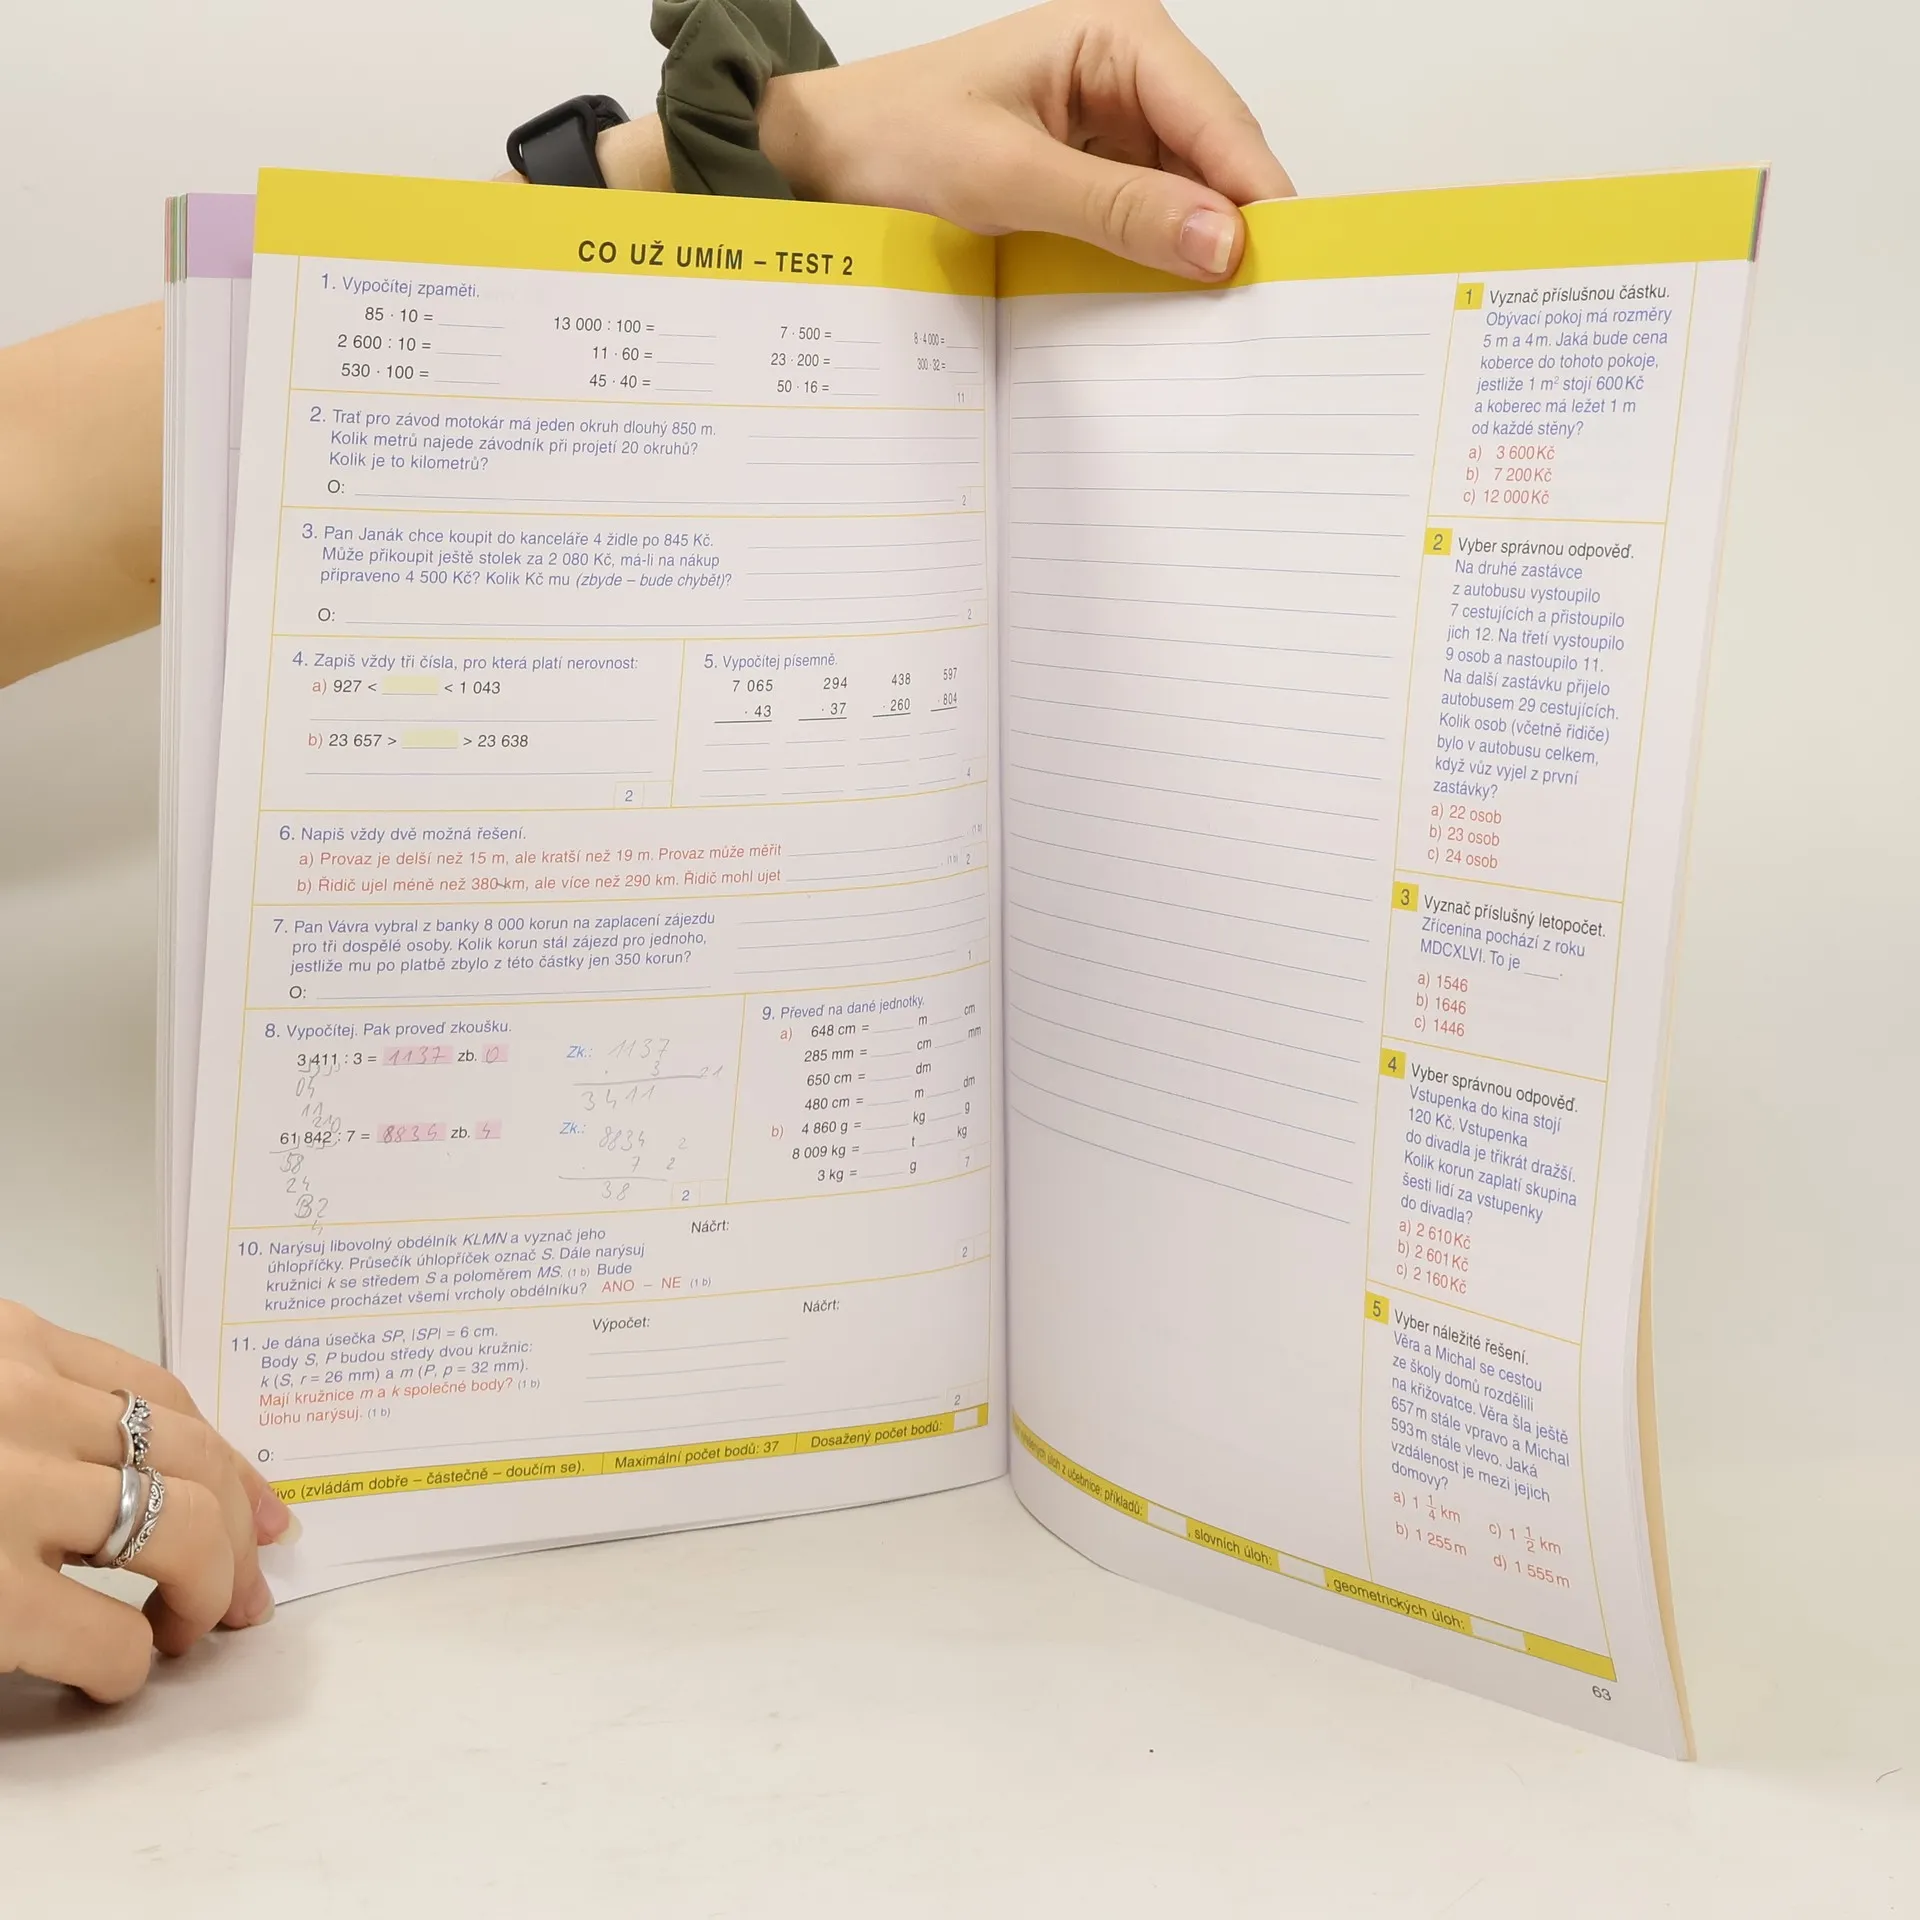 CO UŽ UMÍM – TEST 2
1. Vypočítej zpaměti.
85 · 10 = 13 000 : 100 = 7 · 500 = 8 · 4 000 =
2 600 : 10 = 11 · 60 = 23 · 200 = 300 · 32 =
530 · 100 = 45 · 40 = 50 · 16 =
11
2. Trať pro závod motokár má jeden okruh dlouhý 850 m.
Kolik metrů najede závodník při projetí 20 okruhů?
Kolik je to kilometrů?
O:
2
3. Pan Janák chce koupit do kanceláře 4 židle po 845 Kč.
Může přikoupit ještě stolek za 2 080 Kč, má-li na nákup
připraveno 4 500 Kč? Kolik Kč mu (zbyde – bude chybět)?
O:
2
4. Zapiš vždy tři čísla, pro která platí nerovnost:
a) 927 < < 1 043
b) 23 657 > > 23 638
2
5. Vypočítej písemně.
7 065 294 438 597
· 43 · 37 · 260 · 804
4
6. Napiš vždy dvě možná řešení.
a) Provaz je delší než 15 m, ale kratší než 19 m. Provaz může měřit (1 b)
b) Řidič ujel méně než 380 km, ale více než 290 km. Řidič mohl ujet . (1 b) 2
7. Pan Vávra vybral z banky 8 000 korun na zaplacení zájezdu
pro tři dospělé osoby. Kolik korun stál zájezd pro jednoho,
jestliže mu po platbě zbylo z této částky jen 350 korun?
O:
1
8. Vypočítej. Pak proveď zkoušku.
3 411 : 3 = 1137 zb. 0 Zk.: 1137
04 · 3 21
11 3411
210
61 842 : 7 = 8834 zb. 4 Zk.: 8834 2
58 · 7 2
24 38
32
4
2
9. Převeď na dané jednotky.
a) 648 cm = m cm
285 mm = cm mm
650 cm = dm
480 cm = m dm
b) 4 860 g = kg g
8 009 kg = t kg
3 kg = g
7
10. Narýsuj libovolný obdélník KLMN a vyznač jeho
úhlopříčky. Průsečík úhlopříček označ S. Dále narýsuj
kružnici k se středem S a poloměrem MS. (1 b) Bude
kružnice procházet všemi vrcholy obdélníku? ANO – NE (1 b)
Náčrt:
2
11. Je dána úsečka SP, |SP| = 6 cm.
Body S, P budou středy dvou kružnic:
k (S, r = 26 mm) a m (P, p = 32 mm).
Mají kružnice m a k společné body? (1 b)
Úlohu narýsuj. (1 b)
Výpočet:
Náčrt:
O:
2
ivo (zvládám dobře – částečně – doučím se). Maximální počet bodů: 37 Dosažený počet bodů:
1 Vyznač příslušnou částku.
Obývací pokoj má rozměry
5 m a 4 m. Jaká bude cena
koberce do tohoto pokoje,
jestliže 1 m² stojí 600 Kč
a koberec má ležet 1 m
od každé stěny?
a) 3 600 Kč
b) 7 200 Kč
c) 12 000 Kč
2 Vyber správnou odpověď.
Na druhé zastávce
z autobusu vystoupilo
7 cestujících a přistoupilo
jich 12. Na třetí vystoupilo
9 osob a nastoupilo 11.
Na další zastávku přijelo
autobusem 29 cestujících.
Kolik osob (včetně řidiče)
bylo v autobusu celkem,
když vůz vyjel z první
zastávky?
a) 22 osob
b) 23 osob
c) 24 osob
3 Vyznač příslušný letopočet.
Zřícenina pochází z roku
MDCXLVI. To je .
a) 1546
b) 1646
c) 1446
4 Vyber správnou odpověď.
Vstupenka do kina stojí
120 Kč. Vstupenka
do divadla je třikrát dražší.
Kolik korun zaplatí skupina
šesti lidí za vstupenky
do divadla?
a) 2 610 Kč
b) 2 601 Kč
c) 2 160 Kč
5 Vyber náležité řešení.
Věra a Michal se cestou
ze školy domů rozdělili
na křižovatce. Věra šla ještě
657 m stále vpravo a Michal
593 m stále vlevo. Jaká
vzdálenost je mezi jejich
domovy?
a) 1 1/4 km c) 1 1/2 km
b) 1 255 m d) 1 555 m
úloh z učebnice: příkladů: , slovních úloh: , geometrických úloh: .
63